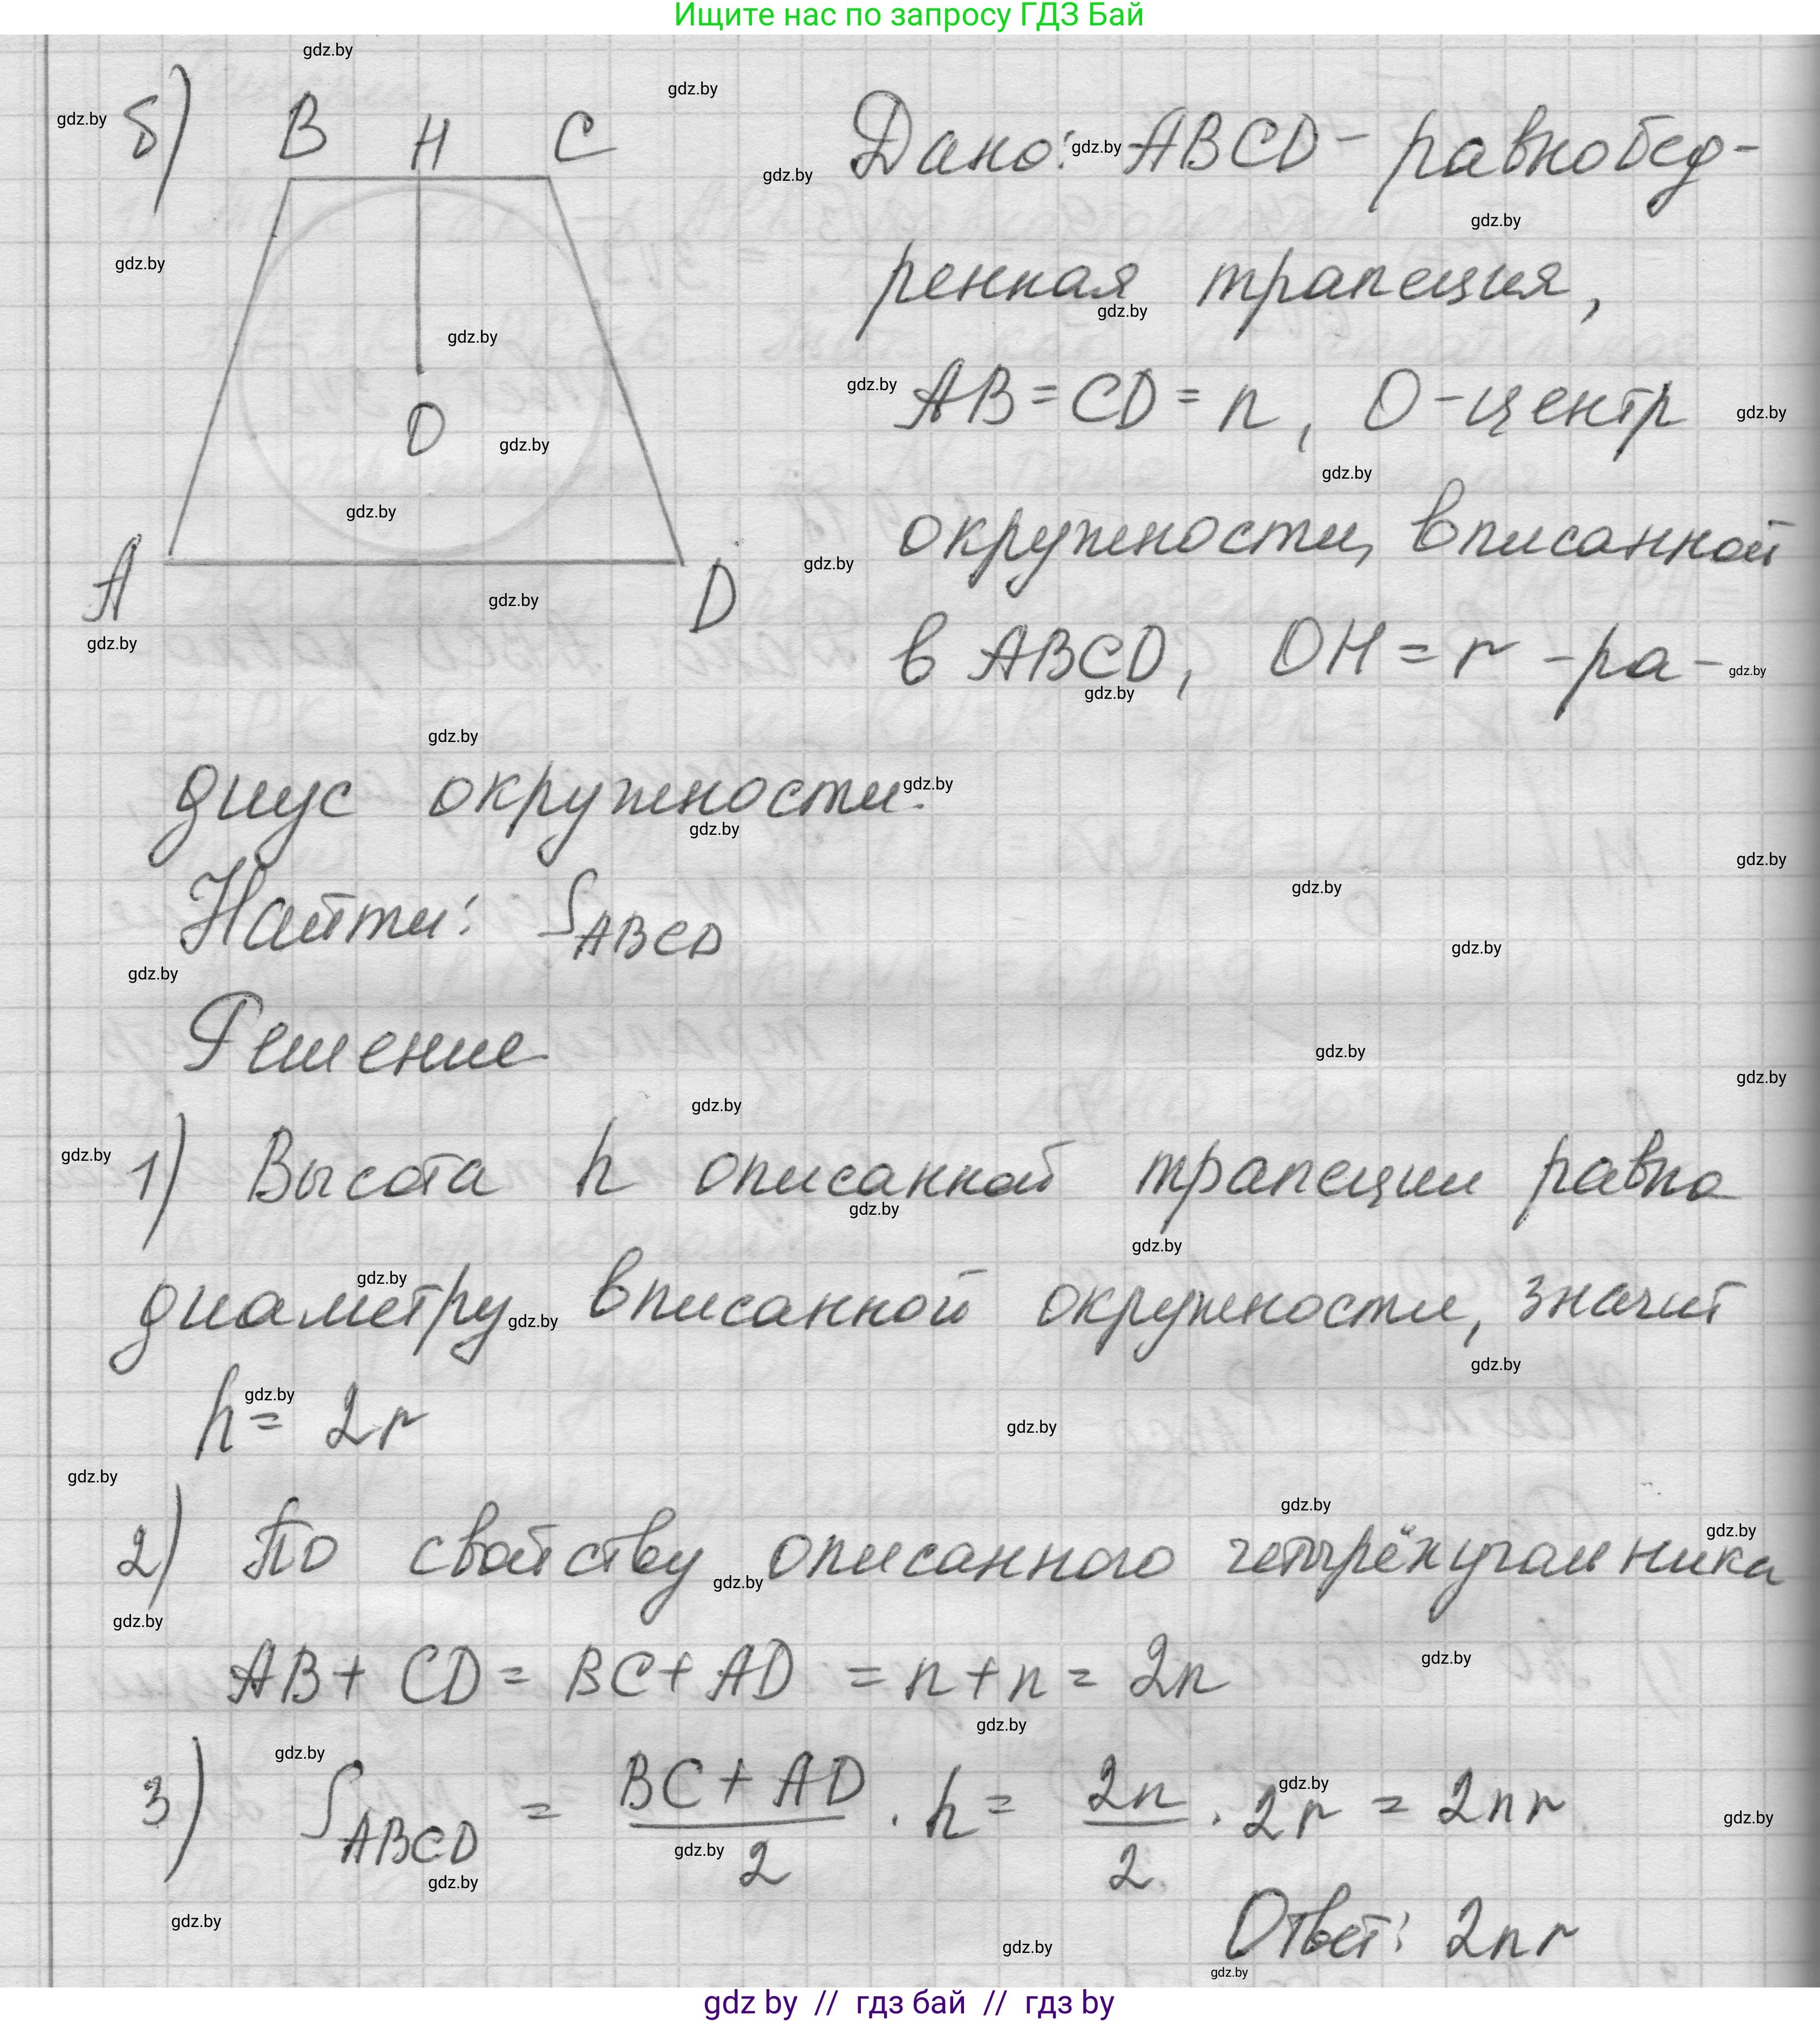 Ищите нас по запросу ГДЗ Бай
б) B H C Дано: ABCD - равнобед-
ренная трапеция,
AB = CD = n, O - центр
O
окружности, вписанной
A D
в ABCD, OH = r - ра-
диус окружности.
Найти: S_ABCD
Решение
1) Высота h описанной трапеции равна
диаметру вписанной окружности, значит
h = 2r
2) По свойству описанного четырёхугольника
AB + CD = BC + AD = n + n = 2n
3) S_ABCD = (BC + AD)/2 · h = 2n/2 · 2r = 2nr
Ответ: 2nr
gdz.by
gdz by // гдз бай // гдз by